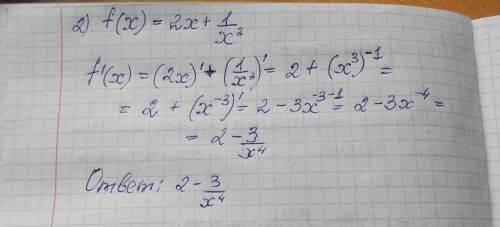 2) f(x) = 2x + 1/x³
f'(x) = (2x)' + (1/x³)' = 2 + (x³)⁻¹ =
= 2 + (x⁻³)' = 2 - 3x⁻³⁻¹ = 2 - 3x⁻⁴ =
= 2 - 3/x⁴
Ответ: 2 - 3/x⁴